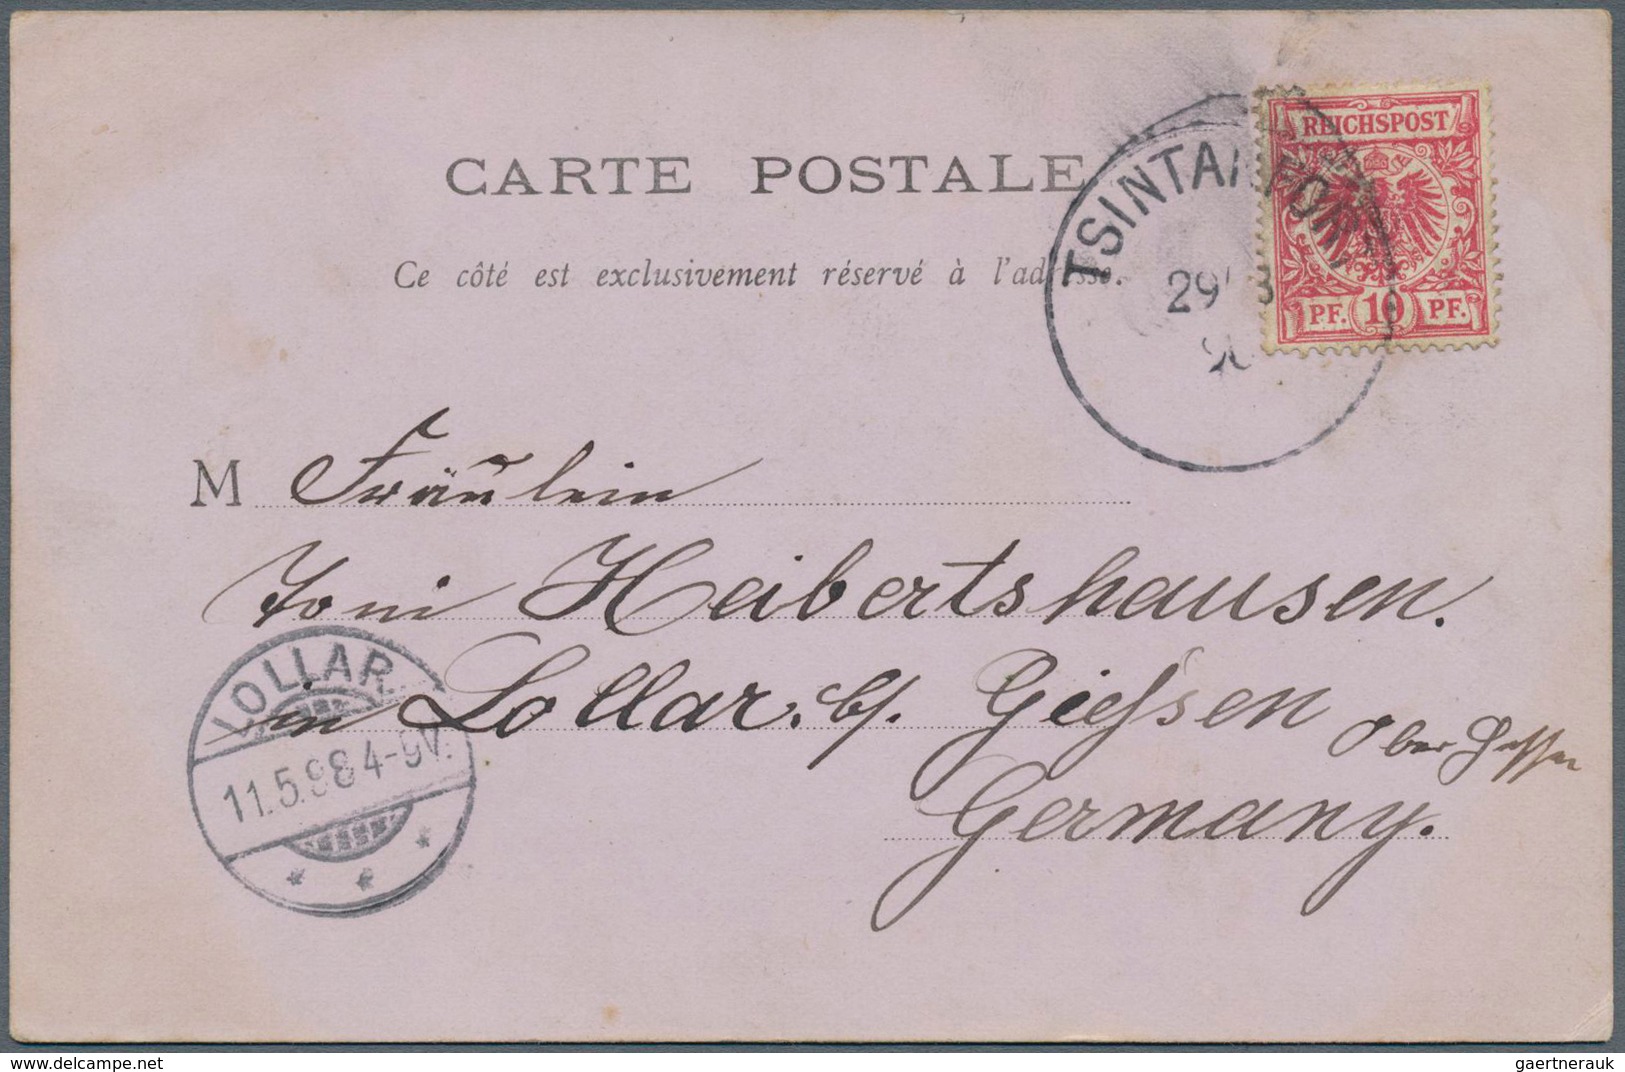 CARTE POSTALE
Ce côté est exclusivement réservé à l'adresse.
REICHSPOST
PF. 10 PF.
TSINTANFORT
29 3
98
M Fräulein
Toni Heibertshausen.
in Lollar. b/. Gießen Ober Hessen
Germany.
LOLLAR.
11.5.98 4-9V.
www.ma-shops.com
gaertnerauk